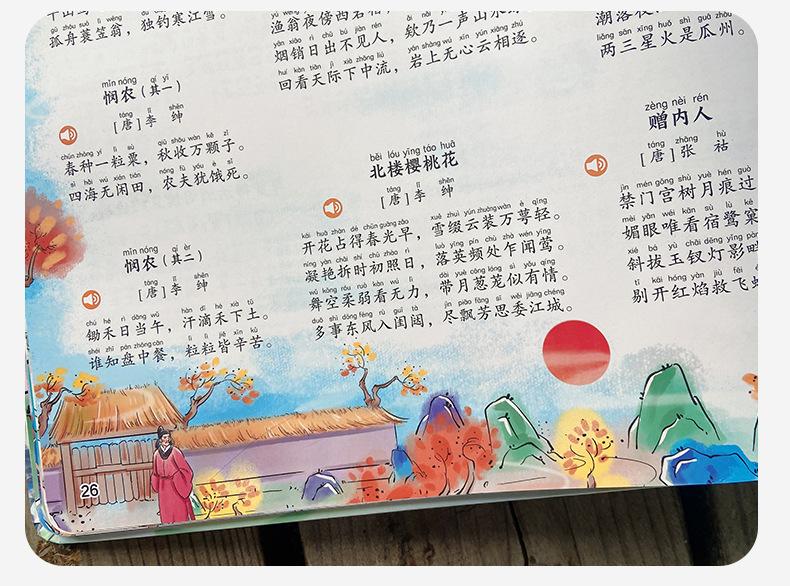 gū zhōu suō lì wēng dú diào hán jiāng xuě
孤舟蓑笠翁，独钓寒江雪。
mǐn nóng qí yī
悯农（其一）
táng lǐ shēn
［唐］李 绅
chūn zhòng yí lì sù qiū shōu wàn kē zǐ
春种一粒粟，秋收万颗子。
sì hǎi wú xián tián nóng fū yóu è sǐ
四海无闲田，农夫犹饿死。
mǐn nóng qí èr
悯农（其二）
táng lǐ shēn
［唐］李 绅
chú hé rì dāng wǔ hàn dī hé xià tǔ
锄禾日当午，汗滴禾下土。
shéi zhī pán zhōng cān lì lì jiē xīn kǔ
谁知盘中餐，粒粒皆辛苦。
yān xiāo rì chū bú jiàn rén
烟销日出不见人，欸乃一声山水
huí kàn tiān jì xià zhōng liú yán shàng wú xīn yún xiāng zhú
回看天际下中流，岩上无心云相逐。
běi lóu yīng táo huā
北楼樱桃花
táng lǐ shēn
［唐］李 绅
kāi huā zhàn dé chūn guāng zǎo xuě zhuì yún zhuāng wàn è qīng
开花占得春光早，雪缀云装万萼轻。
níng yàn chāi shí chū zhào rì luò yīng pín chù zhà wén yīng
凝艳拆时初照日，落英频处乍闻莺。
wǔ kōng róu ruò kàn wú lì dài yuè cōng lóng sì yǒu qíng
舞空柔弱看无力，带月葱茏似有情。
duō shì dōng fēng rù guī tà jìn piāo fāng sī wěi jiāng chéng
多事东风入闺闼，尽飘芳思委江城。
liǎng sān xīng huǒ shì guā zhōu
两三星火是瓜州。
zèng nèi rén
赠内人
táng zhāng hù
［唐］张 祜
jìn mén gōng shù yuè hén guò
禁门宫树月痕过
mèi yǎn wéi kàn sù lù kē
媚眼唯看宿鹭窠
xié bá yù chāi dēng yǐng pàn
斜拔玉钗灯影畔
tī kāi hóng yàn jiù fēi
剔开红焰救飞蛾
26